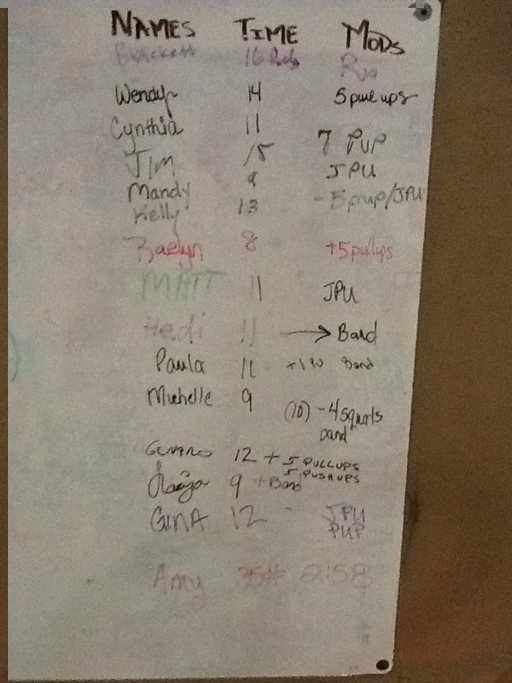 NAMES TIME MODS
Brackett 16 Rds Rx
Wendy 14 5 pullups
Cynthia 11 7 PUP
JIM 15 JPU
Mandy 9 -5pup/JPU
Kelly 13
Raelyn 8 +5pullups
MATT 11 JPU
Hedi 11 → Band
Paula 11 Band
Michelle 9 (10) -4 squats
band
12 + 5 PULLUPS
5 PUSHUPS
9 + Band
GINA 12 - JPU
PUP
Amy 35# 2:58